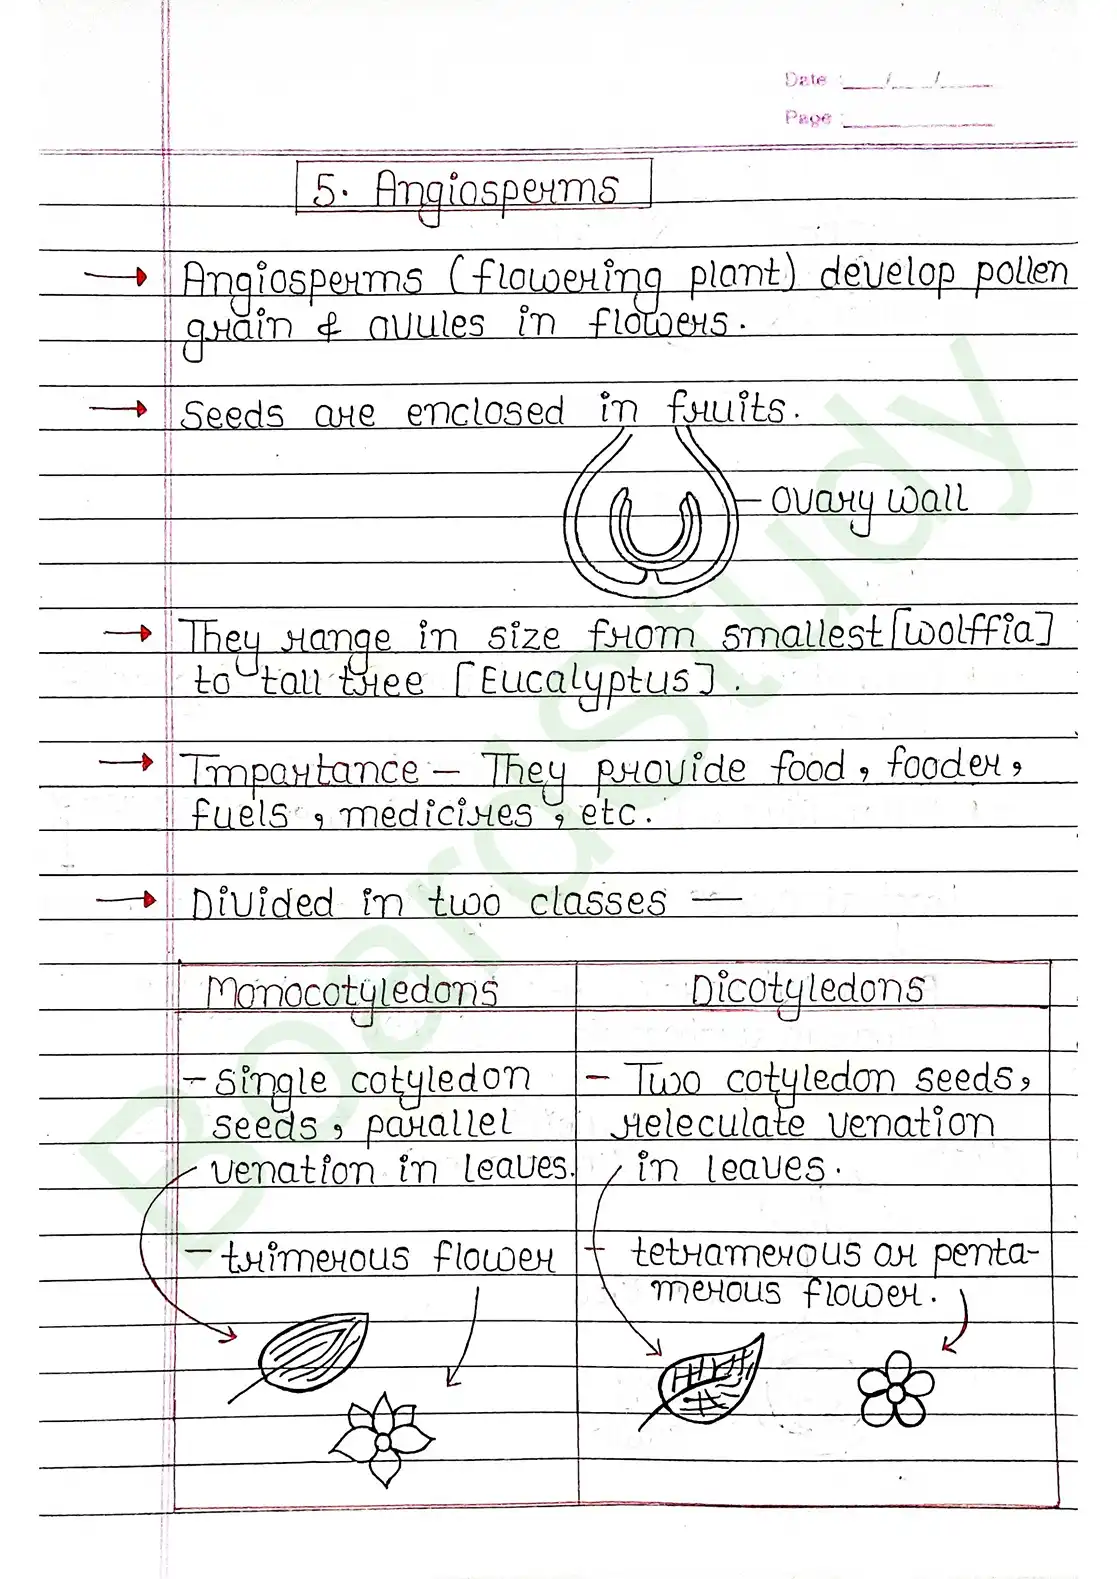 Date : __/__/__
Page : ______
5. Angiosperms
Angiosperms (flowering plant) develop pollen
grain & ovules in flowers.
Seeds are enclosed in fruits.
Ovary wall
They range in size from smallest [wolffia]
to tall tree [Eucalyptus].
Importance – They provide food, fooder,
fuels, medicines, etc.
Divided in two classes —
Monocotyledons
- Single cotyledon
seeds, parallel
venation in leaves.
- trimerous flower
Dicotyledons
- Two cotyledon seeds,
releculate venation
in leaves.
- tetramerous or penta-
merous flower.
BoardStudy